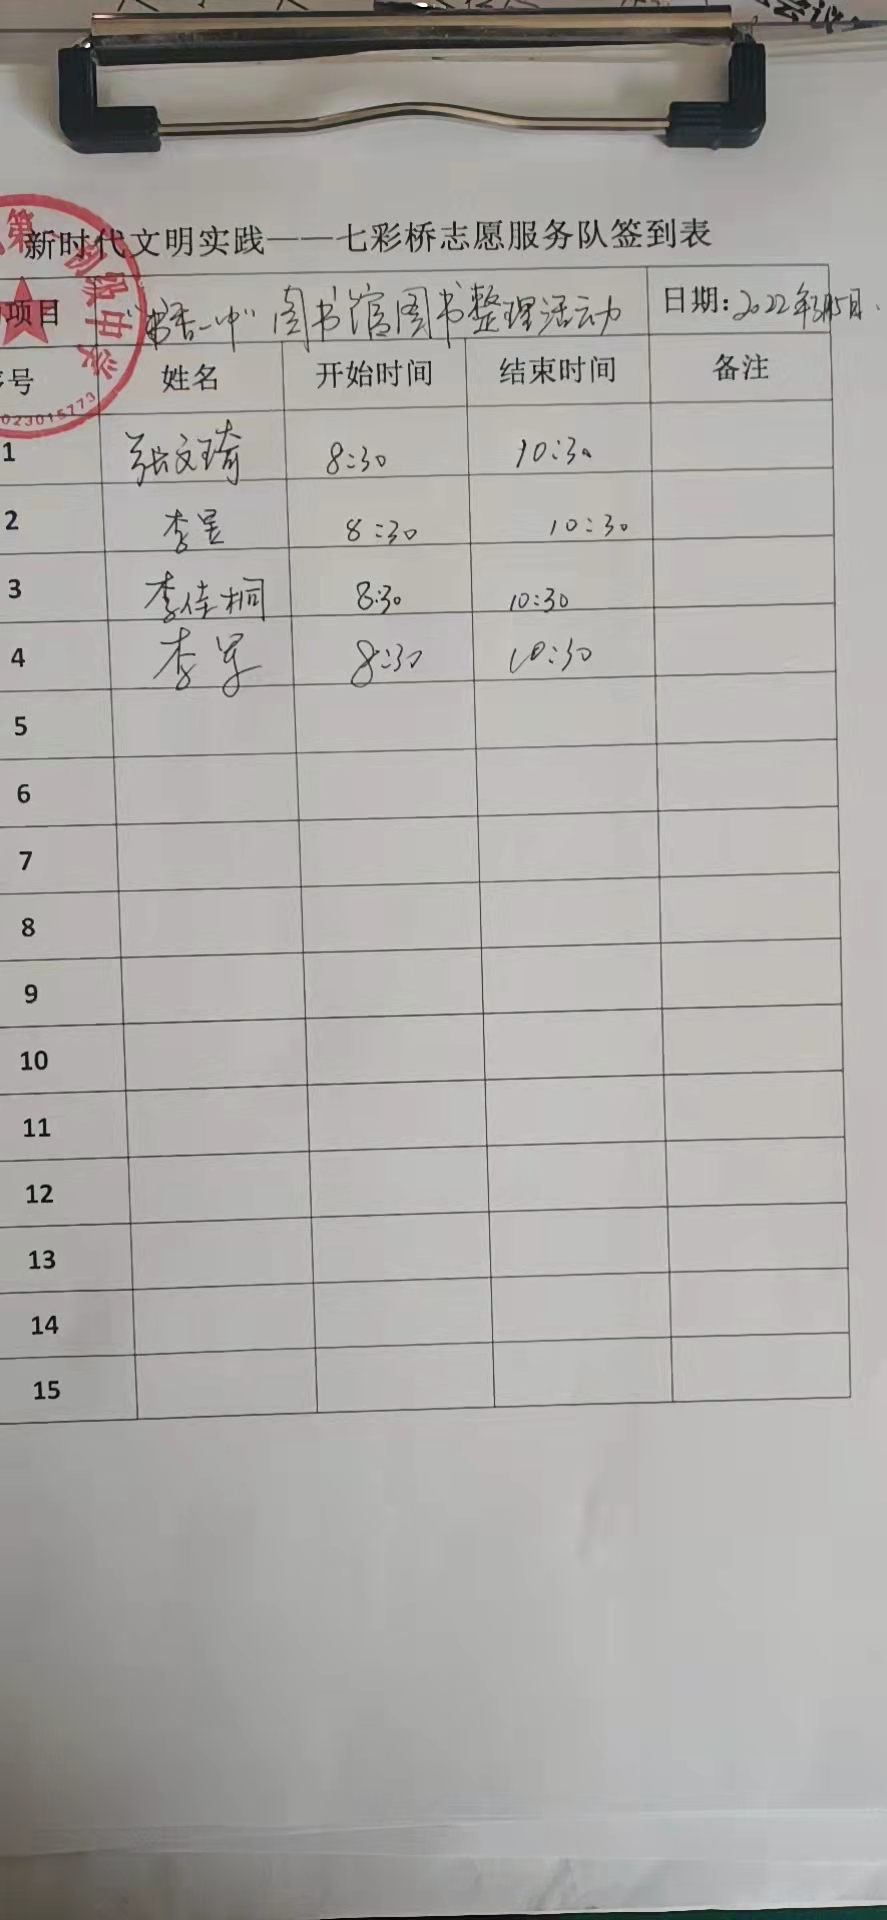 新时代文明实践——七彩桥志愿服务队签到表
项目 "书香一中"图书馆图书整理活动 日期:2022年3月5日
序号 姓名 开始时间 结束时间 备注
1 张文琦 8:30 10:30
2 李昱 8:30 10:30
3 李佳桐 8:30 10:30
4 李军 8:30 10:30
5
6
7
8
9
10
11
12
13
14
15
第一初级中学
023015773